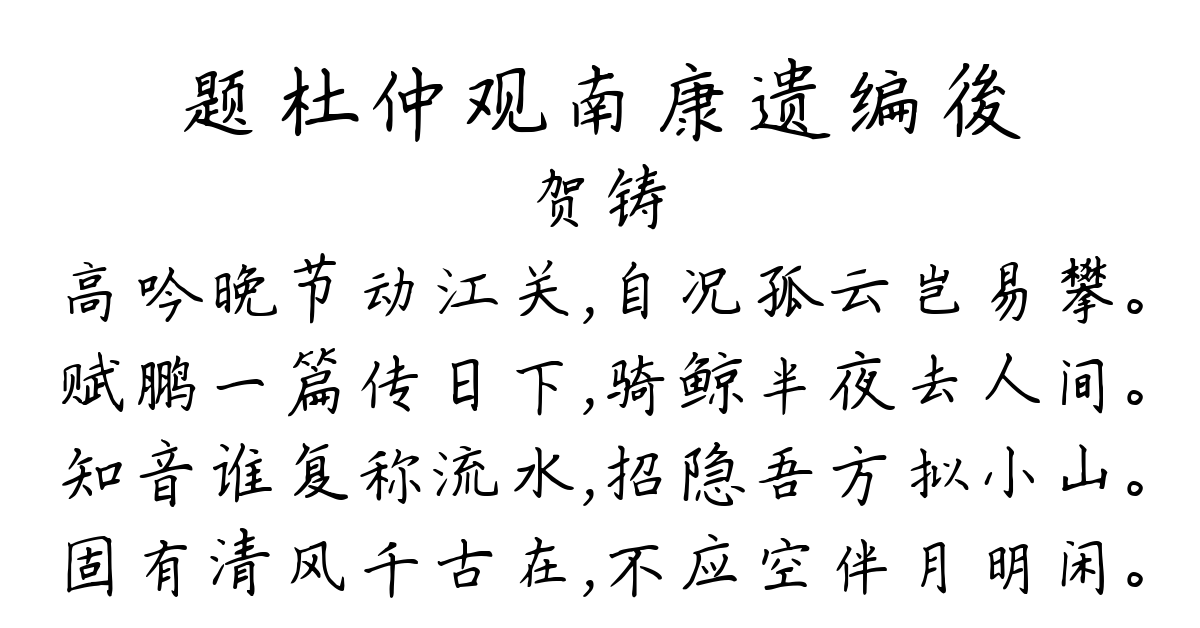 题杜仲观南康遗编後
贺铸
高吟晚节动江关,自况孤云岂易攀。
赋鹏一篇传日下,骑鲸半夜去人间。
知音谁复称流水,招隐吾方拟小山。
固有清风千古在,不应空伴月明闲。